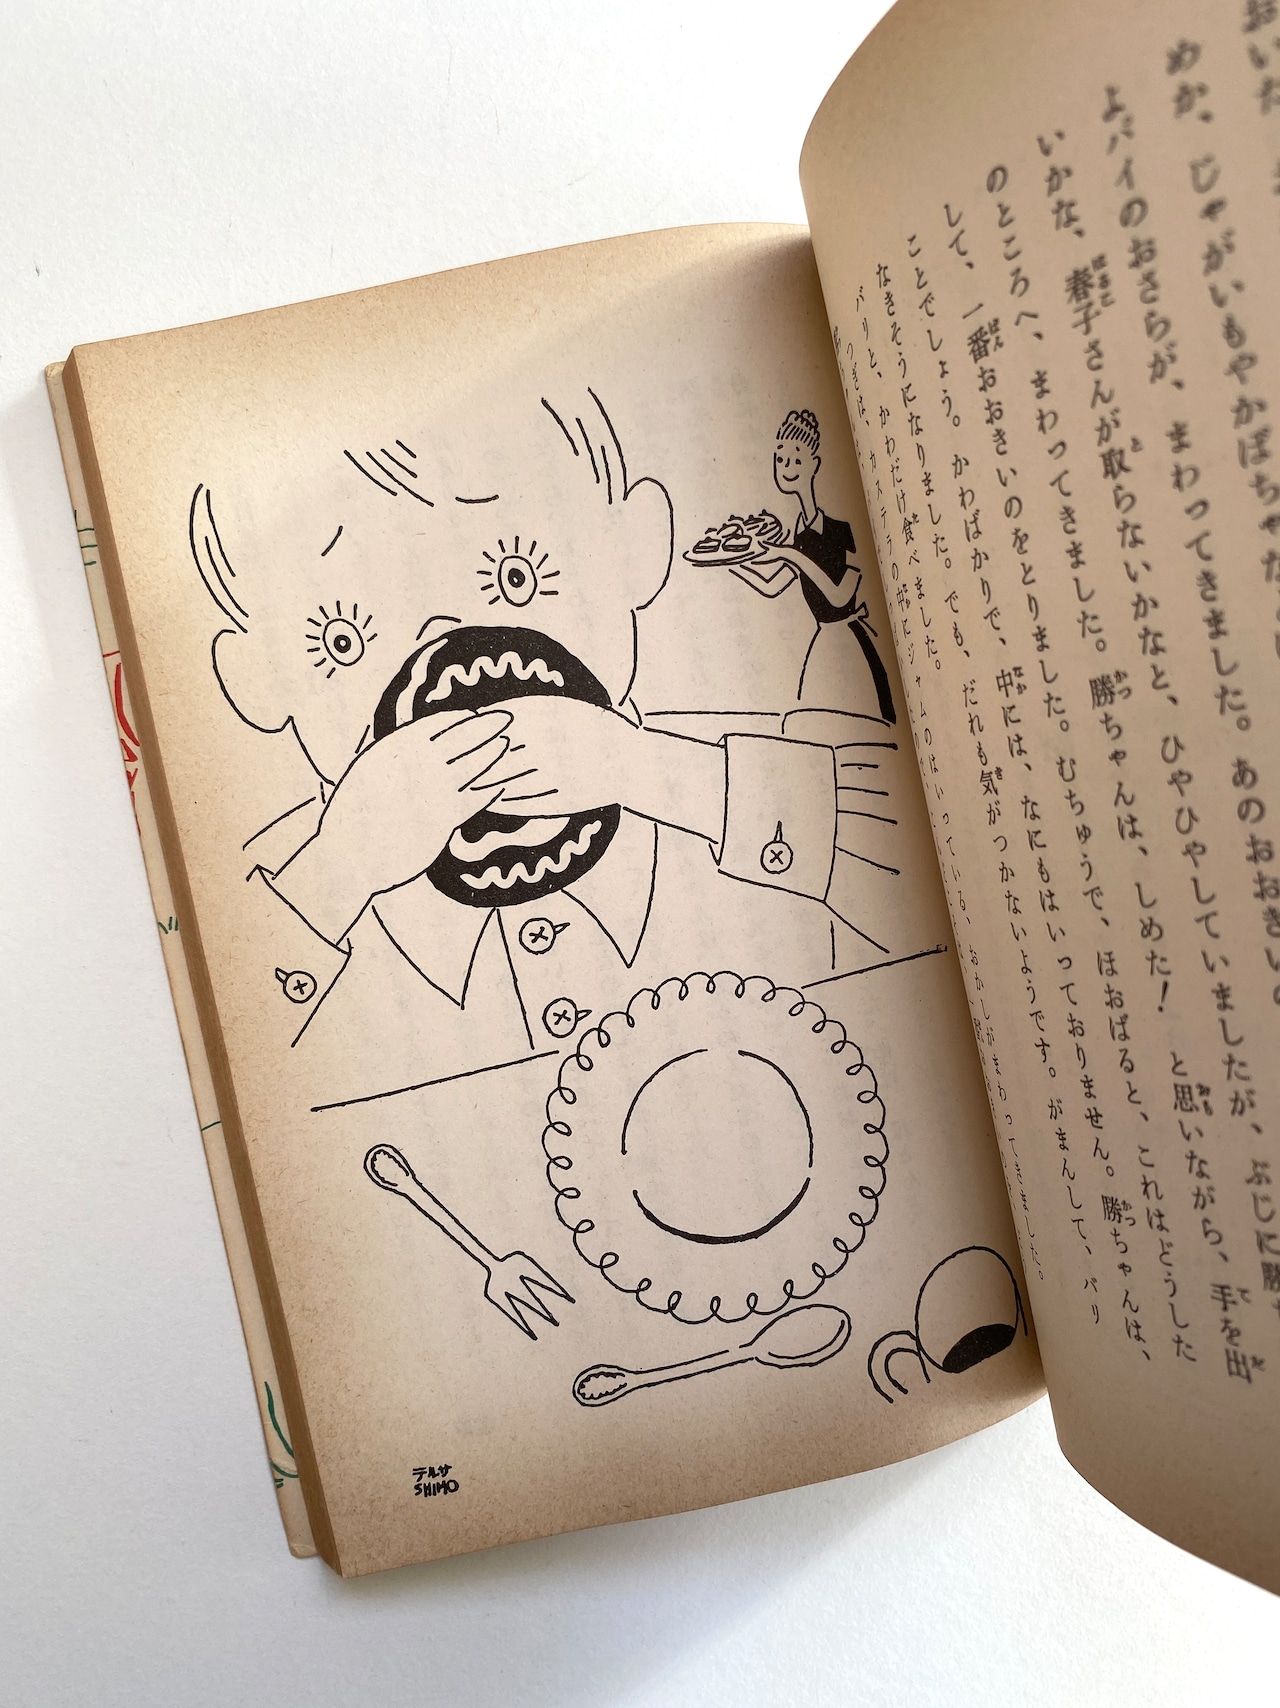 めか、じゃがいもやかぼちゃだ
よパイのおさらが、まわってきました。あのおおきいの
いかな、春子さんが取らないかなと、ひやひやしていましたが、ぶじに勝
のところへ、まわってきました。勝ちゃんは、しめた！と思いながら、手を出
して、一番おおきいのをとりました。むちゅうで、ほおばると、これはどうした
ことでしょう。かわばかりで、中には、なにもはいっておりません。勝ちゃんは、
なきそうになりました。でも、だれも気がつかないようです。がまんして、バリ
バリと、かわだけ食べました。
つぎは、カステラの中にジャムのはいっている、おかしがまわってきました。
テルサ
SHIMO